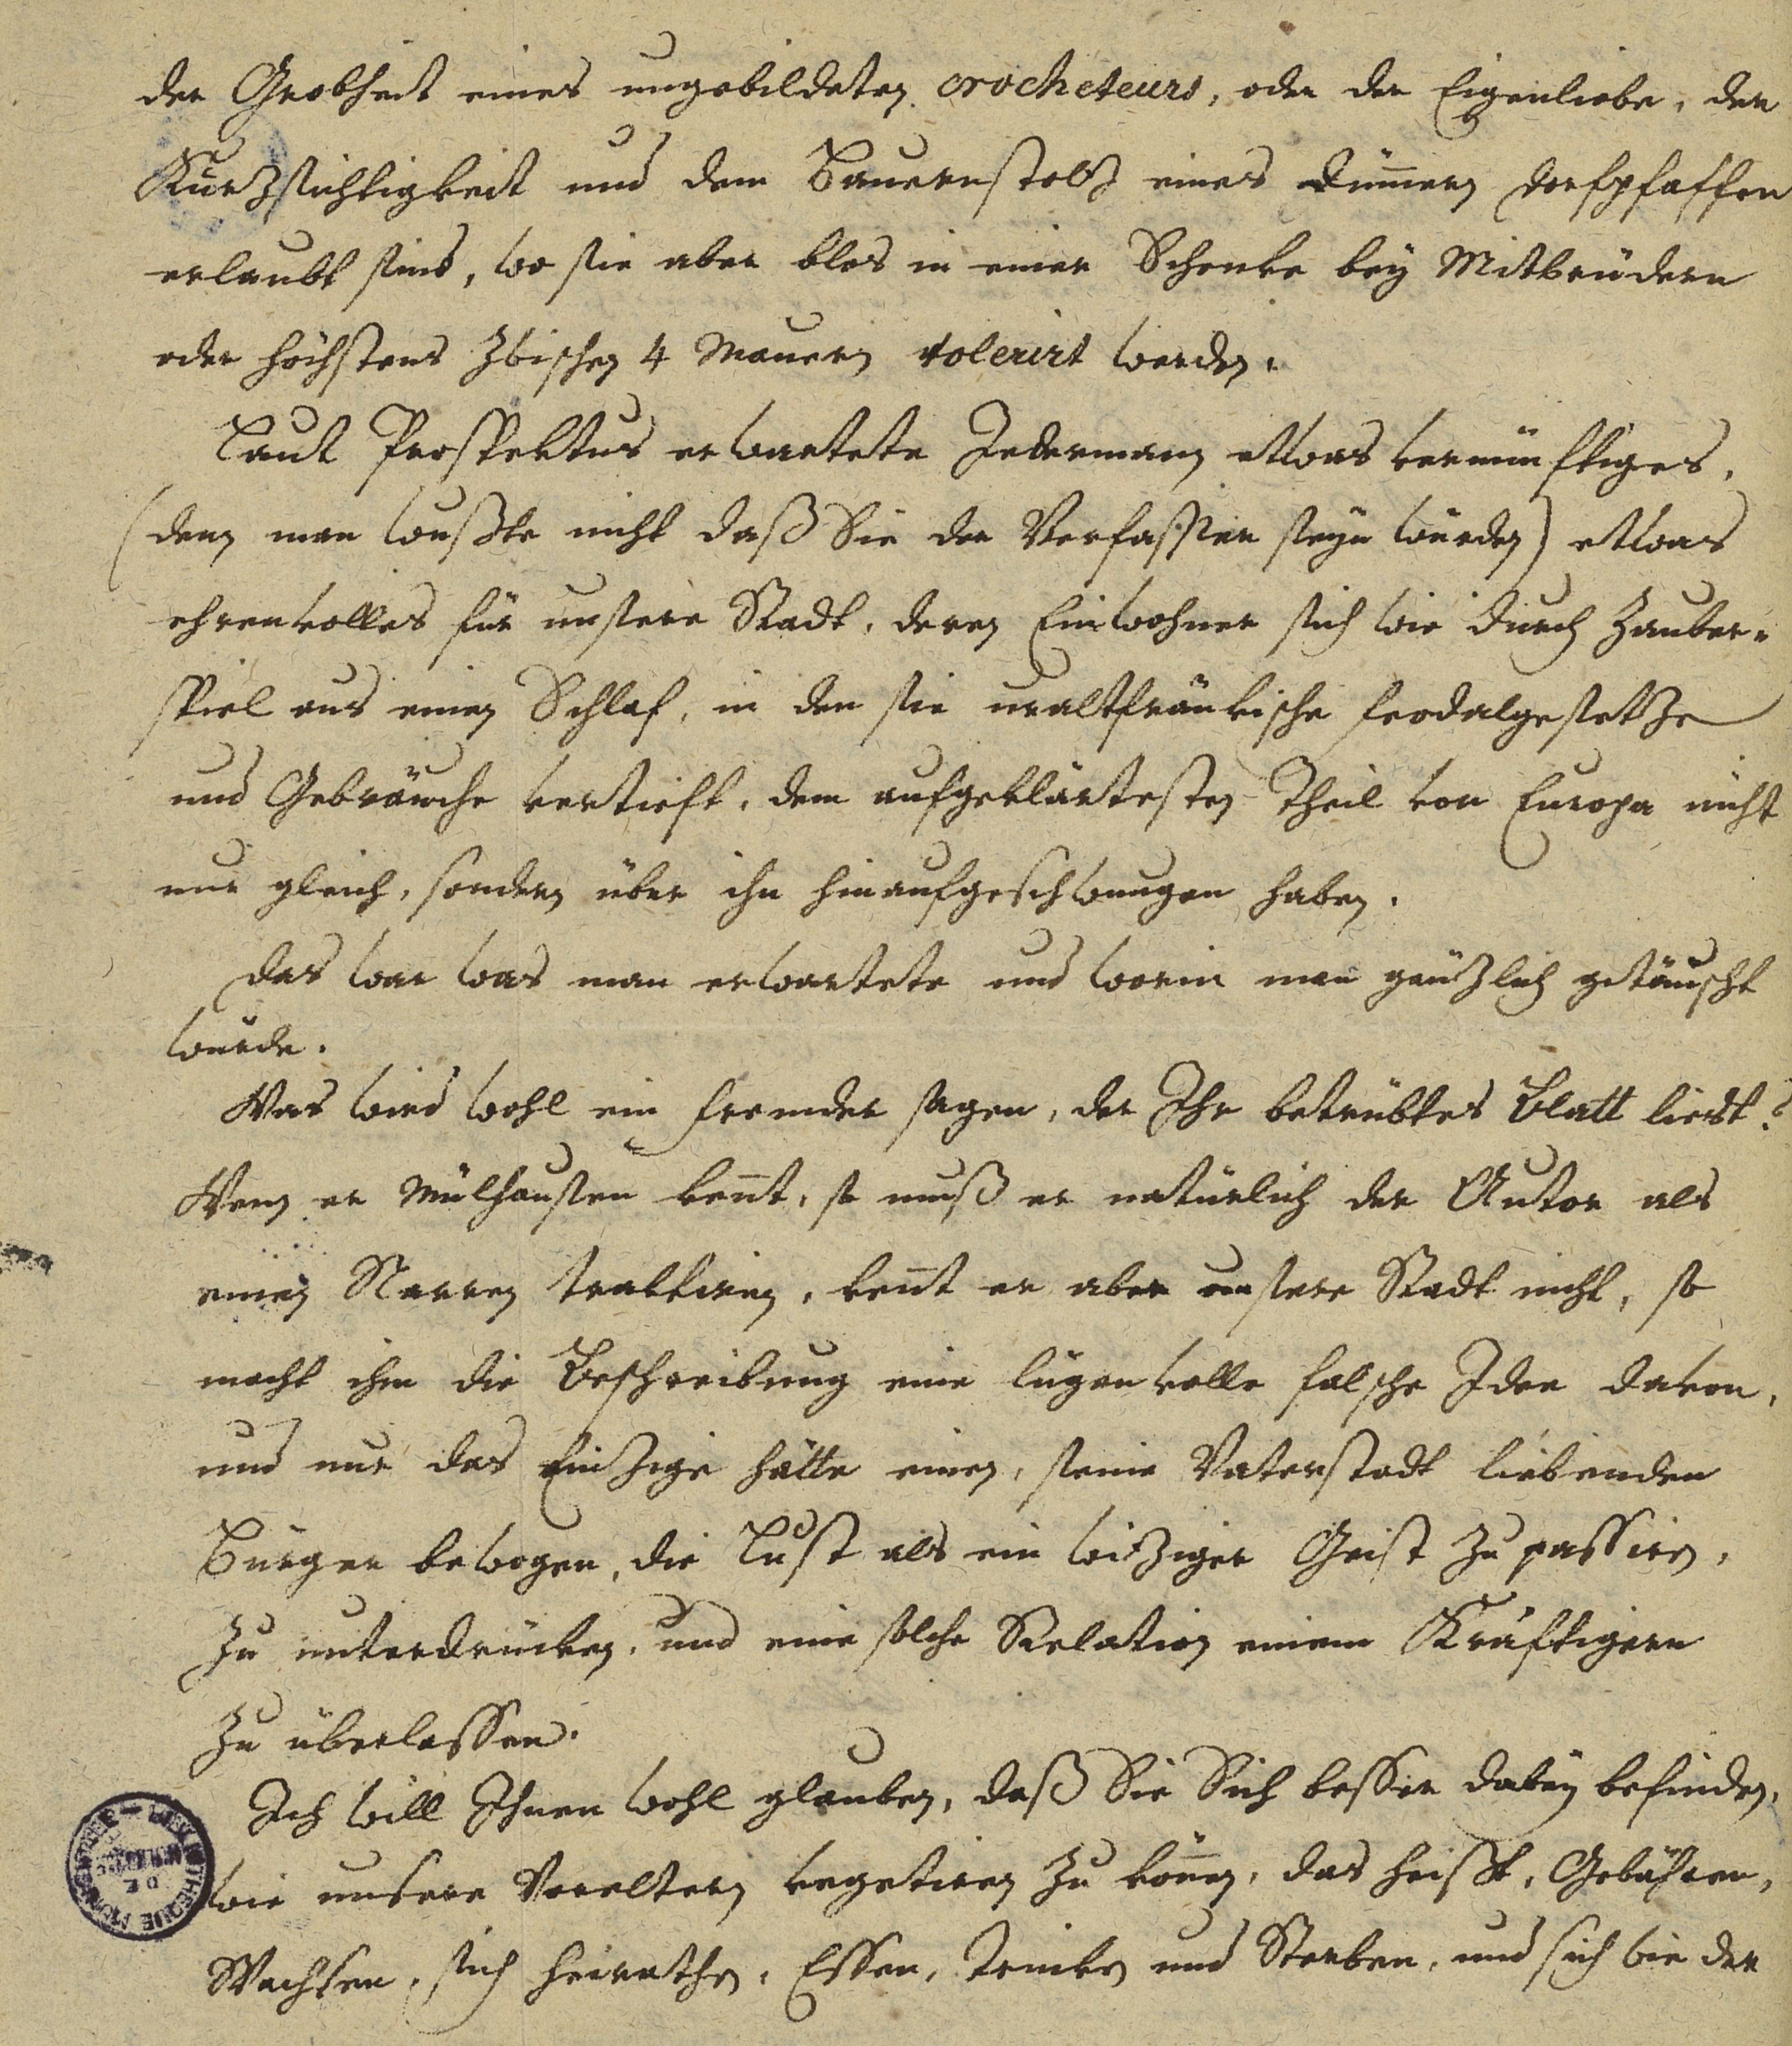 der Grobheit eines ungebildeten crocheteurs, oder der Eigenliebe, der
Kurzsichtigkeit und dem Bauernstolz eines dum̄en Dorfpfaffen
erlaubt sind, wo sie aber blos in einer Schenke bey Mitbrüdern
oder höchstens zwischen 4 Mauern tolerirt werden.
Laut Prospektus erwartete Jedermann etwas vernünftiges,
(denn man wußte nicht daß Sie der Verfasser seyn würden) etwas
ehrenvolles für unsere Stadt, deren Einwohner sich wie durch Zauber-
spiel aus einem Schlaf, in den sie uraltfränkische Feodalgesetze
und Gebräuche vertieft, dem aufgeklärtesten Theil von Europa nicht
nur gleich, sondern über ihn hinaufgeschwungen haben.
Das war was man erwartete und worin man gänzlich getäuscht
wurde.
Was wird wohl ein Fremder sagen, der Ihr betrübtes Blatt liest?
Wenn er Mülhausen ken̄t, so muß er natürlich der Autor als
einen Narren traktiren, ken̄t er aber unsere Stadt nicht, so
macht ihm die Beschreibung eine lügenvolle falsche Idee davon,
und nur das Einzige hätte einen, seine Vaterstadt liebenden
Bürger bewogen, die Lust als ein witziger Geist zu passiren,
zu unterdrücken, und eine solche Relation einem Kräftigern
zu überlassen.
Ich will Ihnen wohl glauben, daß Sie Sich besser dabey befinden,
wie unsere Voreltern vegetiren zu kön̄en, das heißt, Gebähren,
Wachsen, sich heirathen, Essen, Trinken und Sterben, und sich wie der
BIBLIOTHEQUE MUN
DE